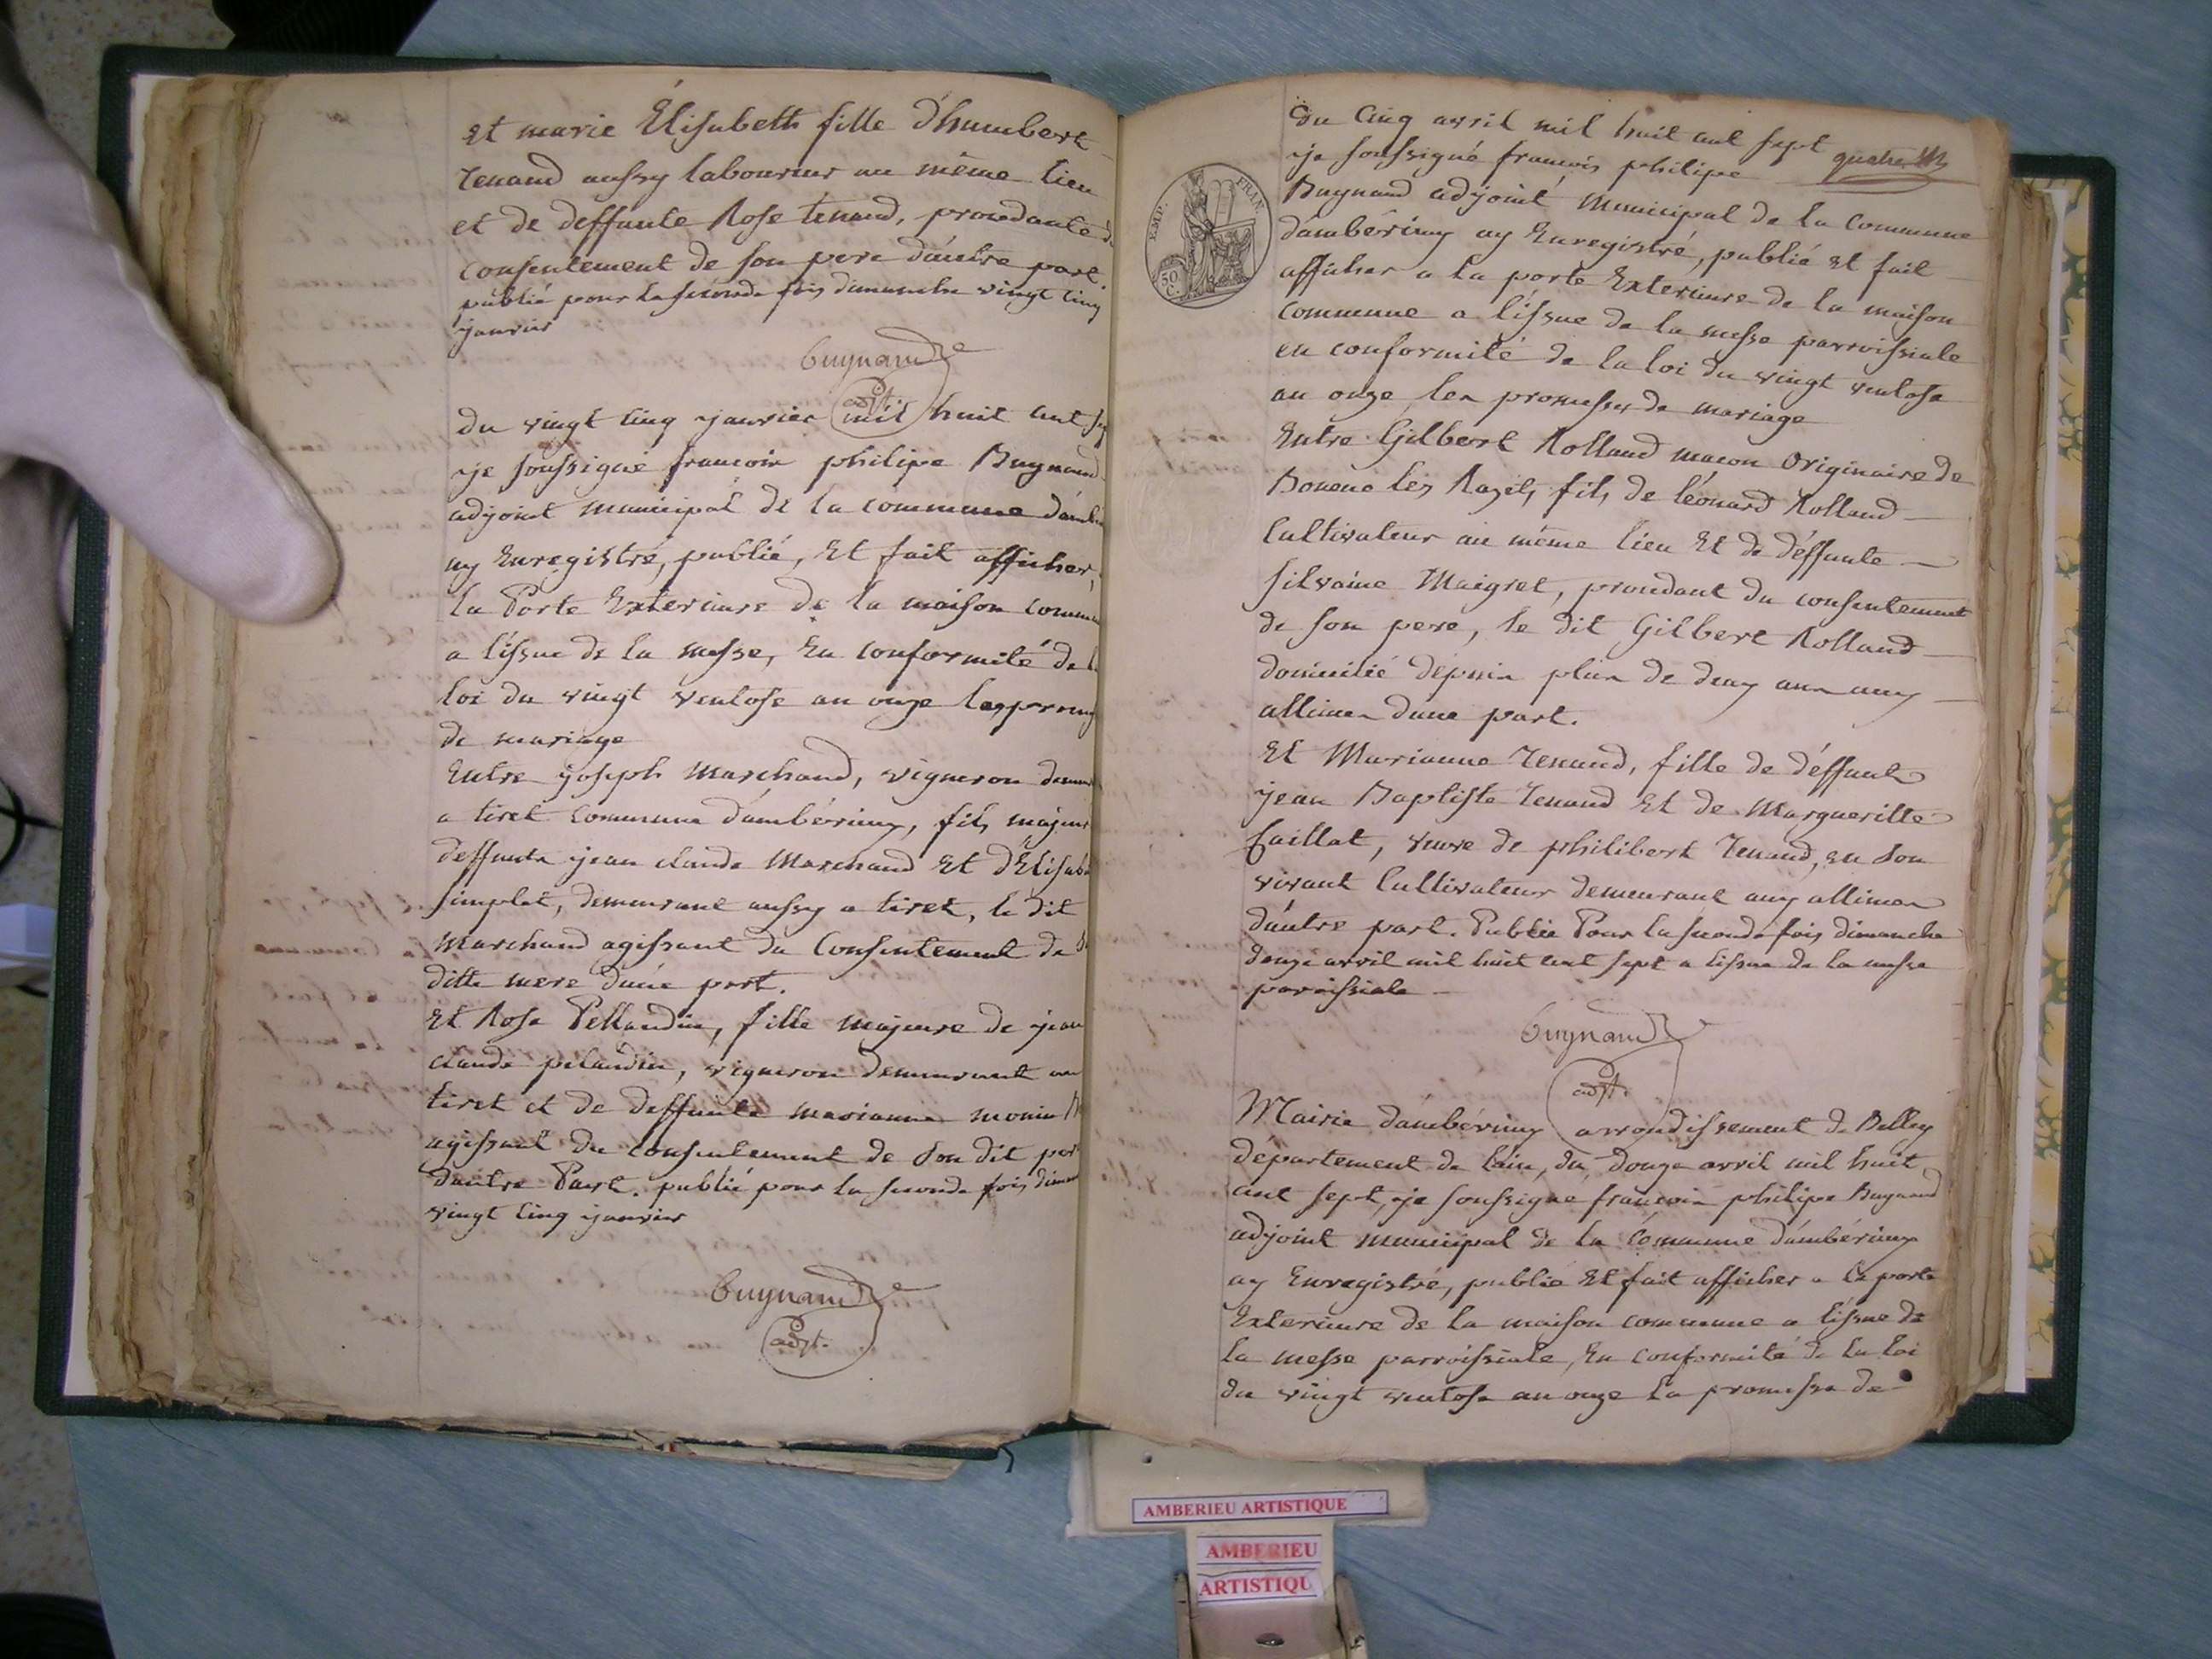 et marie Élisabeth fille d'humbert
tenand aussy laboureur au même lieu
et de deffunte Rose tenand, procedante du
consentement de son pere d'autre part.
publié pour la seconde fois dimanche vingt cinq
janvier
Buynand
adjt.
du vingt cinq janvier mil huit cent sep
je soussigné francois philipe Buynand
adjoint municipal de la commune d'ambe
ay Enregistré, publié, Et fait afficher,
la Porte Exterieure de la maison commu
a l'issue de la messe, En conformité de la
loi du vingt ventose an onze les prom
de mariage
Entre joseph Marchand, vigneron demeu
a tiret commune d'ambérieux, fils majeur
deffunt jean claude Marchand Et d'Elisab
simplet, demeurant aussy a tiret, le dit
Marchand agissant du Consentement de
ditte mere d'une part.
Et Rose Pellandin, fille majeure de jean
claude pelandin, vigneron demeurant au
tiret et de deffunte marianne monin
agissant du consentement de son dit per
d'autre Part. publié pour la seconde fois diman
vingt cinq janvier
Buynand
adjt.
du cinq avril mil huit cent sept
quatre
je soussigné francois philipe
Buynand adjoint municipal de la commune
d'ambérieux ay Enregistré, publié Et fait
afficher a la porte Exterieure de la maison
commune a l'issue de la messe parroissiale
en conformité de la loi du vingt ventose
an onze les promesses de mariage
EMP. FRAN.
50 C.
Entre Gilbert Rolland macon Originaire de
les Razels, fils de léonard Rolland
Cultivateur au même lieu Et de déffunte
silvaine Maigret, procedant du consentement
de son pere, le dit Gilbert Rolland
domicilié depuis plus de deux ans aux
allimes d'une part.
Et Marianne Tenand, fille de déffunt
jean Baptiste Tenand Et de Margueritte
Caillat, veuve de philibert Tenand, en son
vivant Cultivateur demeurant aux allimes
d'autre part. Publié Pour la seconde fois dimanche
douze avril mil huit cent sept a lissue de la messe
paroissiale
Buynand
adjt.
Mairie d'ambérieux arrondissement de Belley
département de l'ain, du douze avril mil huit
cent sept, je soussigné francois philipe Buynand
adjoint municipal de la commune d'ambérieux
ay Enregistré, publié Et fait afficher a la porte
Exterieure de la maison commune a l'issue de
la messe parroissiale, En conformité de la loi
du vingt ventose an onze la promesse de
AMBERIEU ARTISTIQUE
AMBERIEU
ARTISTIQU